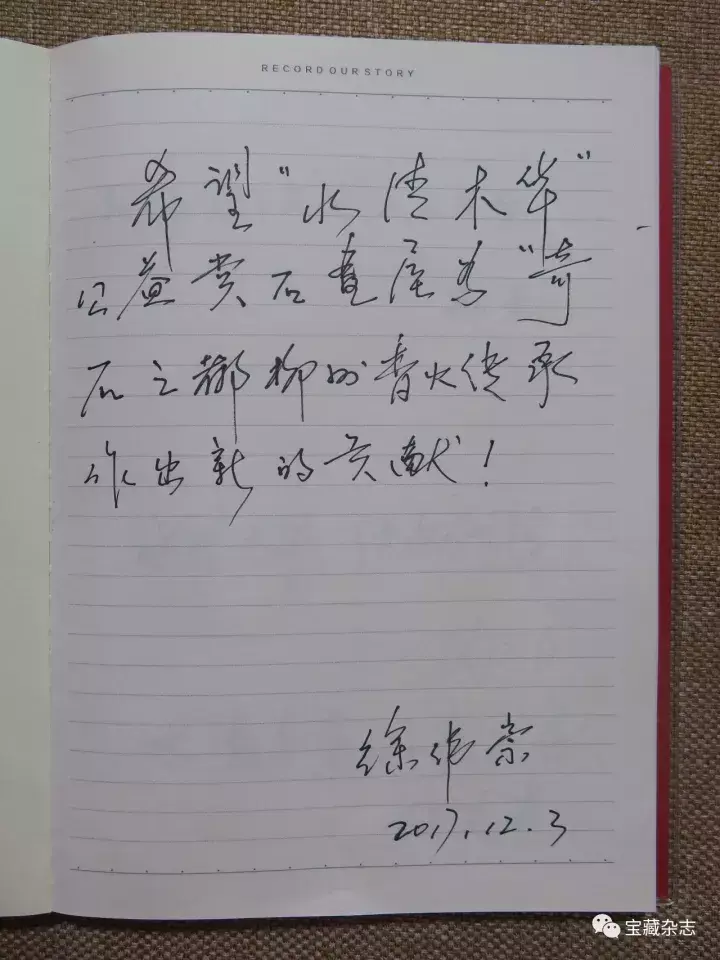 RECORD OUR STORY
希望“水清木华”
公益赏石画展为“奇
石之都柳州香火传承
作出新的贡献！
徐作崇
2017.12.3
宝藏杂志